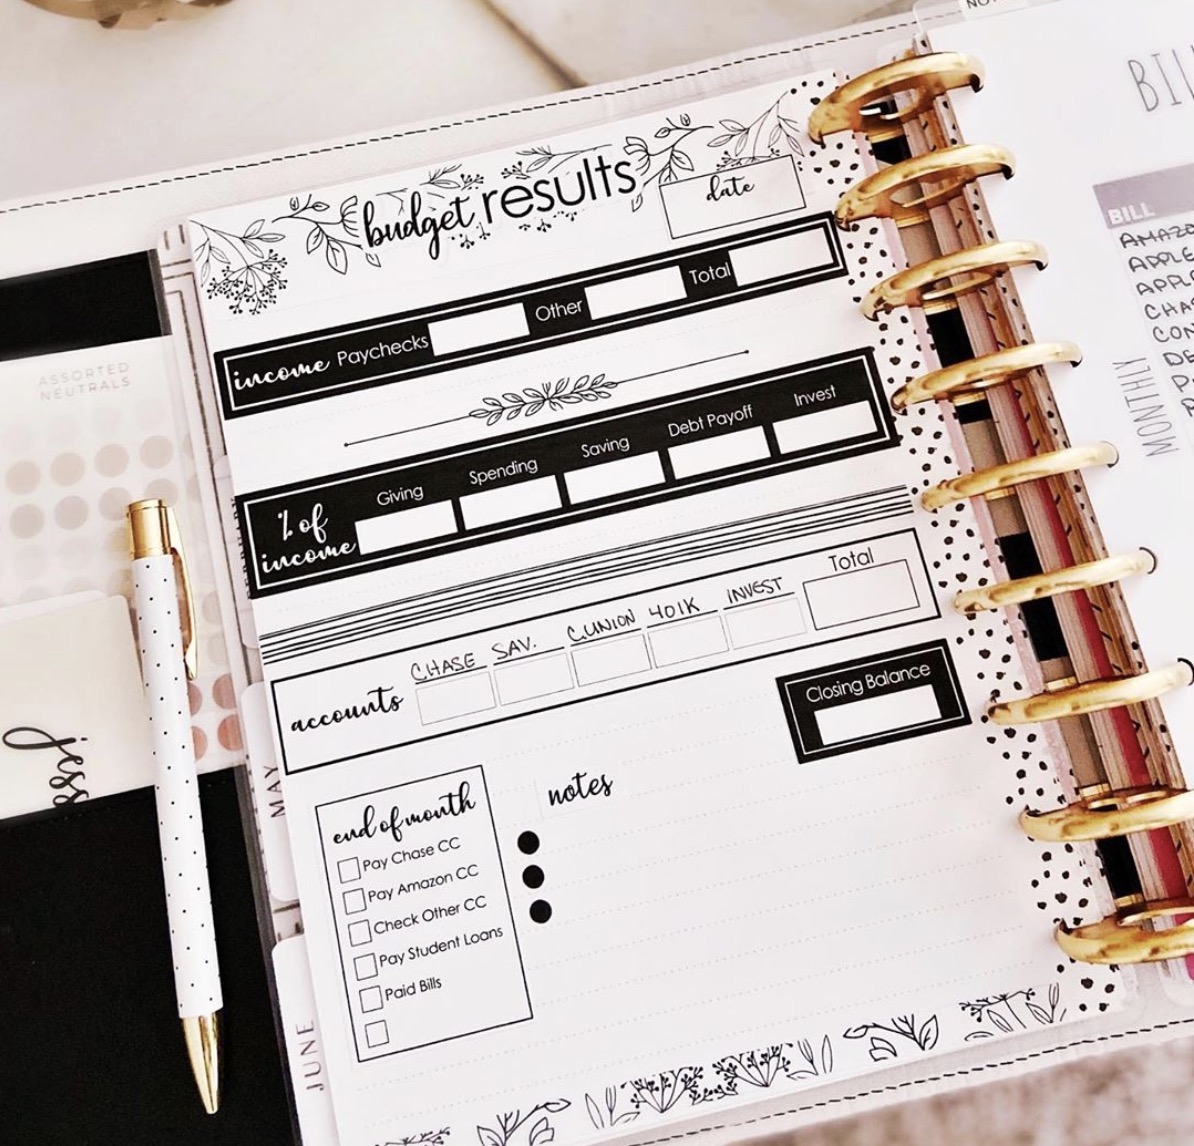 budget results
date
income Paychecks Other Total
% of income
Giving Spending Saving Debt Payoff Invest
accounts
CHASE SAV. C.UNION 401K INVEST Total
Closing Balance
end of month
Pay Chase CC
Pay Amazon CC
Check Other CC
Pay Student Loans
Paid Bills
notes
ASSORTED
NEUTRALS
jess
MAY
JUNE
MONTHLY
BILL